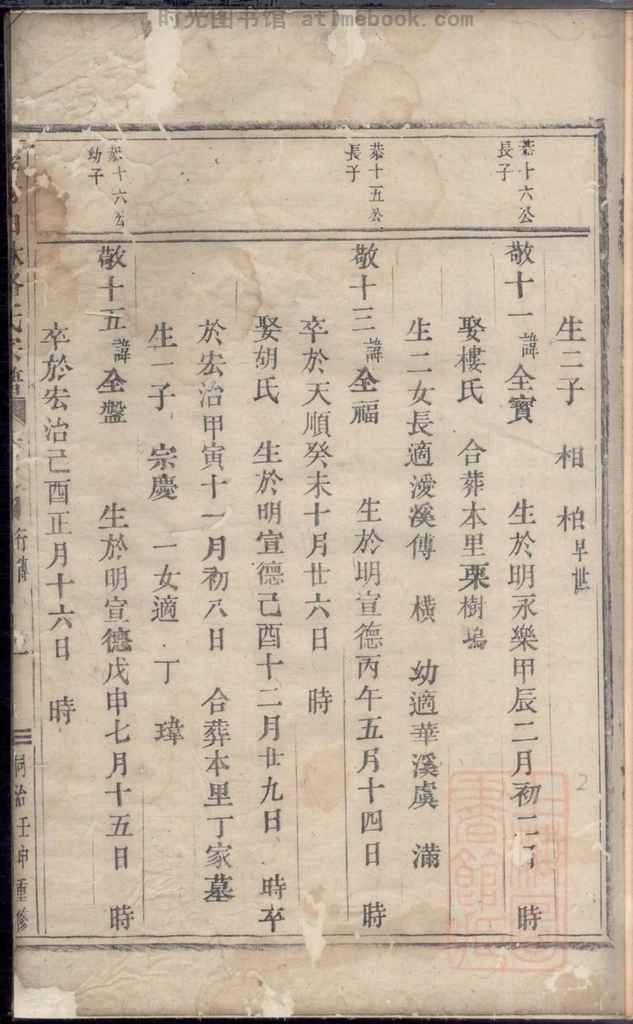 时光图书馆 at1mebook.com
生二子 相 柏早世
恭十六公長子
敬十一諱全寶 生於明永樂甲辰二月初二日 時
娶樓氏 合葬本里栗樹塢
生二女長適溪傅 橫 幼適華溪虞 滿
恭十五公長子
敬十三諱全福 生於明宣德丙午五月十四日 時
卒於天順癸未十月廿六日 時
娶胡氏 生於明宣德己酉十二月廿九日 時卒
於宏治甲寅十一月初八日 合葬本里丁家墓
生一子 宗慶 一女適 丁 瑋
恭十六公幼子
敬十五諱全盤 生於明宣德戊申七月十五日 時
卒於宏治己酉正月十六日 時
氏宗譜 行傳
同治壬申重修